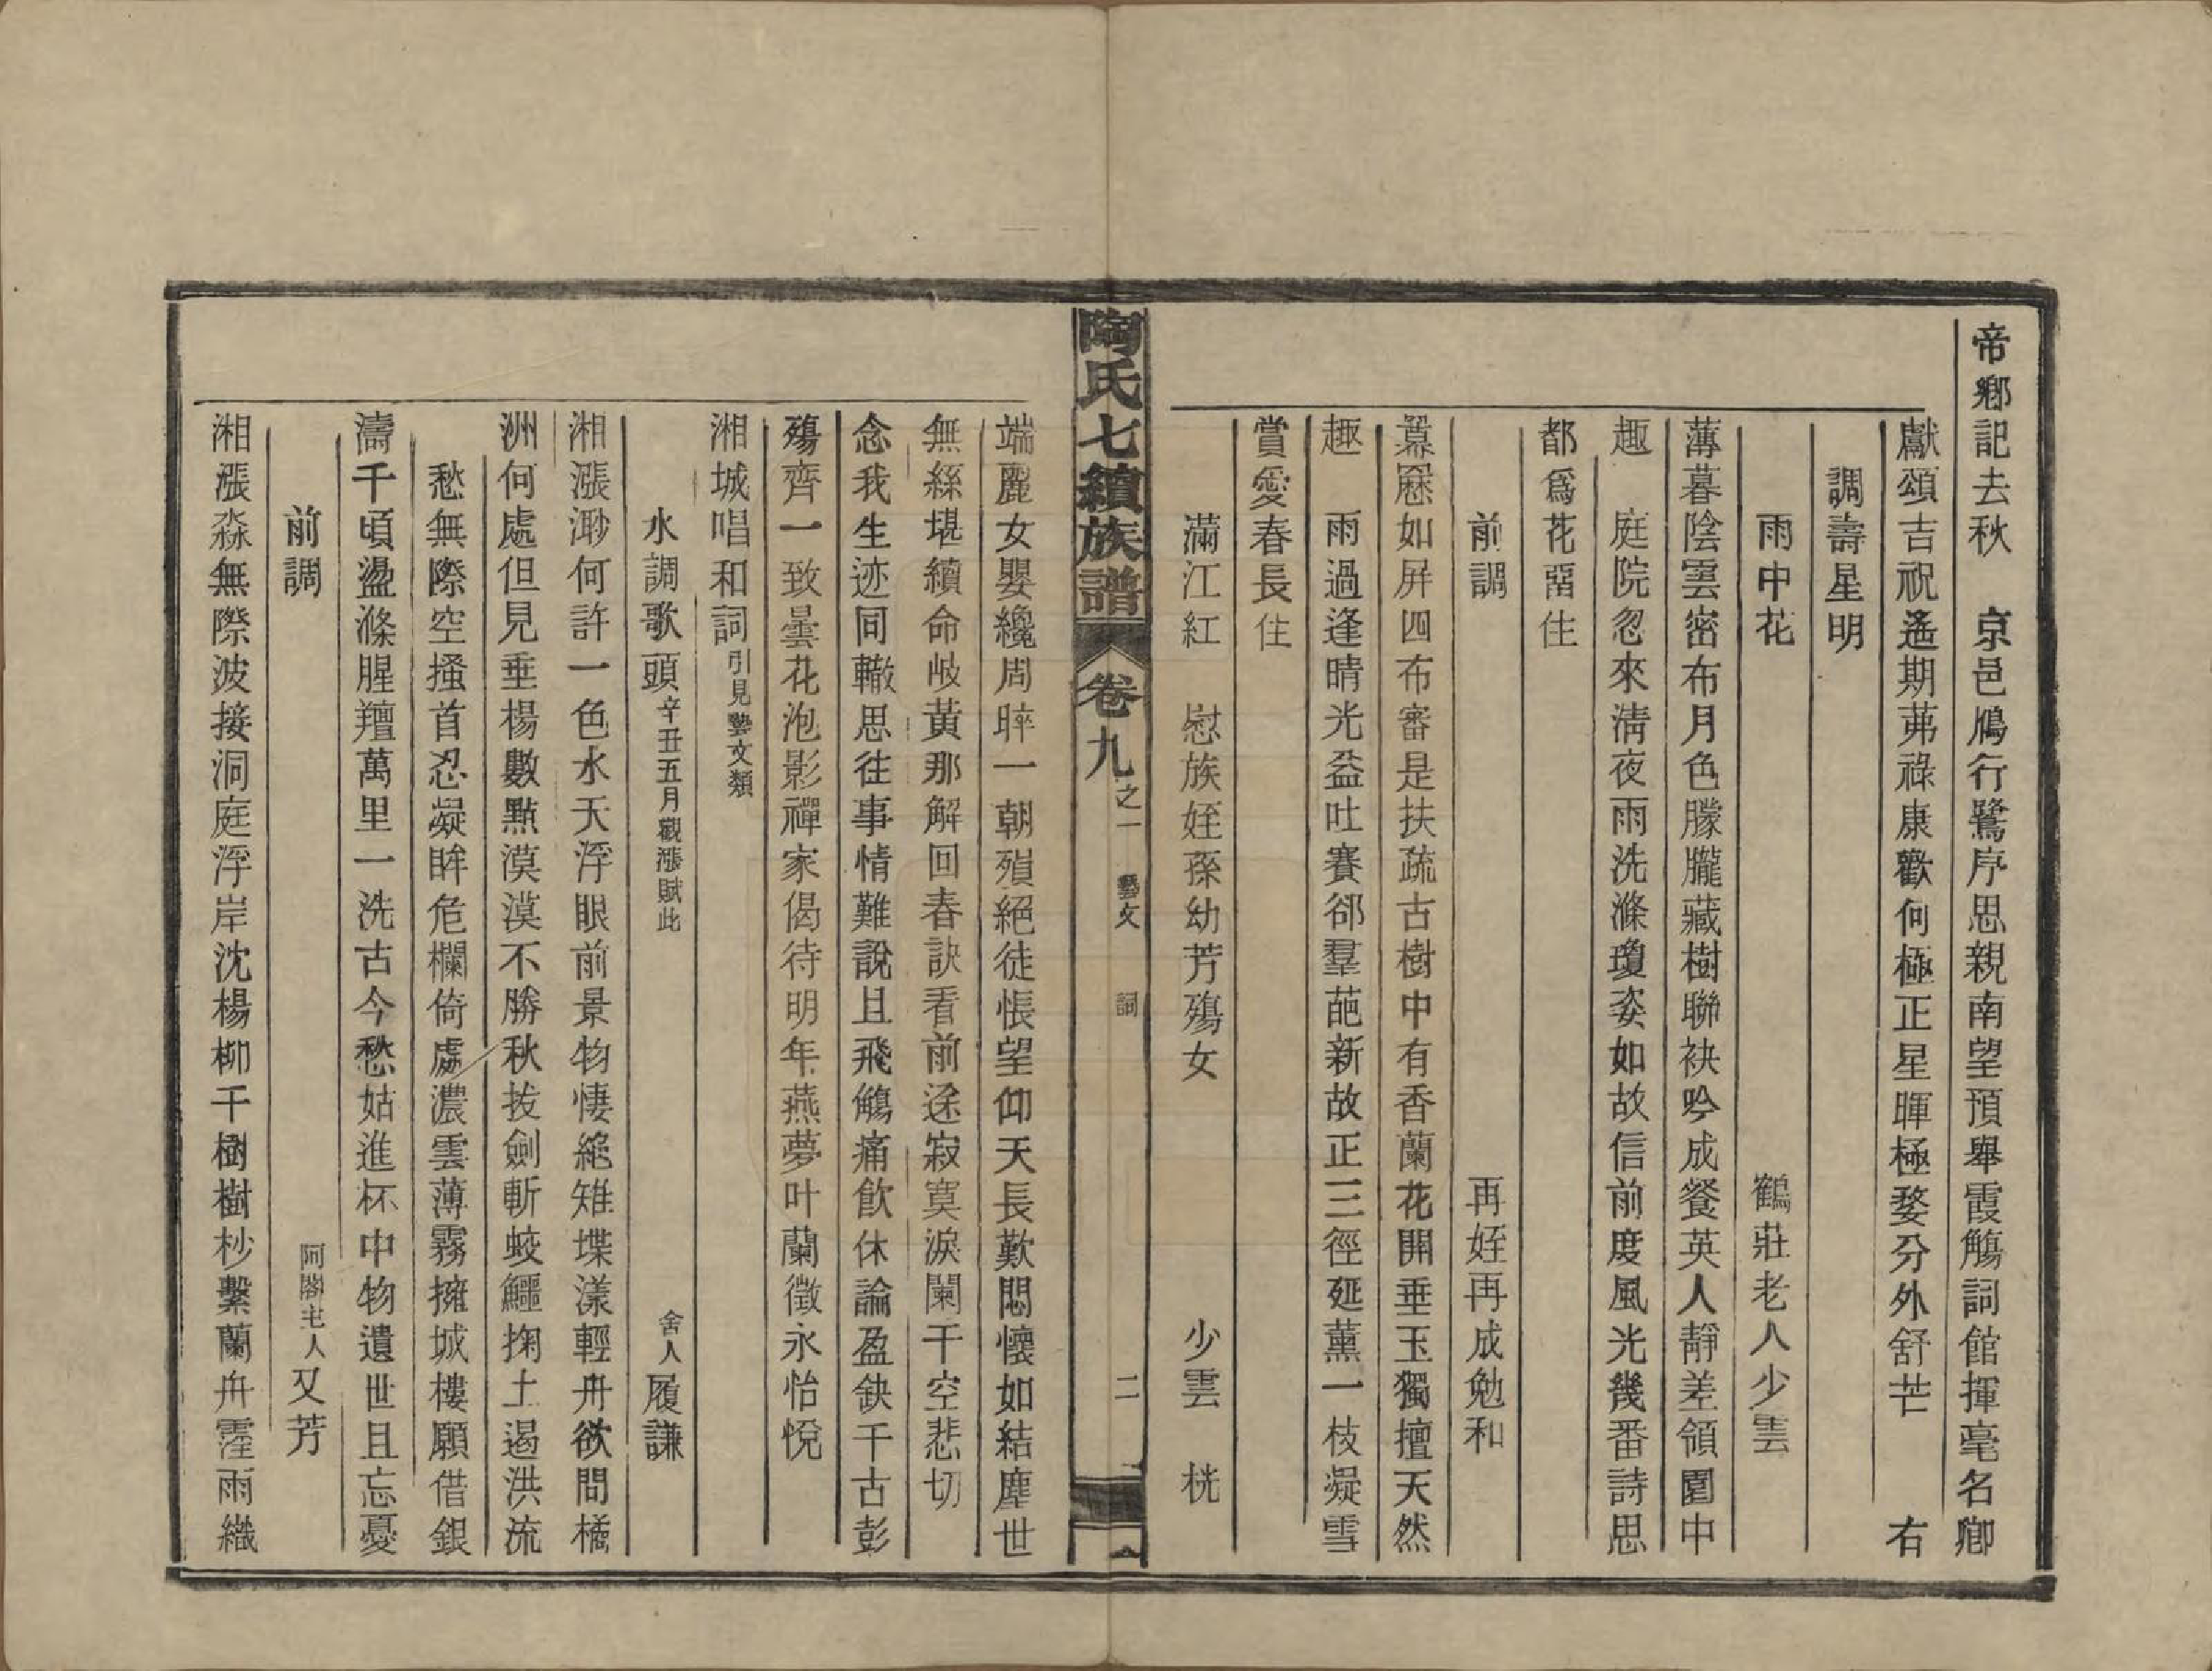 帝鄉記去秋　京邑鴈行鷺序思親南望預舉霞觴詞館揮毫名卿
獻頌吉祝遙期茀祿康歡何極正星暉極婺分外舒芒　右
調壽星明
雨中花　鶴莊老人少雲
薄暮陰雲密布月色朦朧藏樹聯袂吟成餐英人靜差領園中
趣　庭院忽來淸夜雨洗滌瓊姿如故信前度風光幾番詩思
都爲花畱住
前調　再姪再成勉和
羃䍥如屏四布審是扶疏古樹中有香蘭花開垂玉獨擅天然
趣　雨過逢晴光益吐賽郤羣葩新故正三徑延薰一枝凝雪
賞愛春長住
滿江紅　慰族姪孫幼芳殤女　少雲　桄
陶氏七續族譜　卷九之一　藝文　詞　二
端麗女嬰纔周晬一朝殞絕徒悵望仰天長歎悶懷如結塵世
無絲堪續命岐黃那解回春訣看前途寂寞淚闌干空悲切
念我生迹同轍思往事情難說且飛觴痛飲休論盈缺千古彭
殤齊一致曇花泡影禪家偈待明年燕夢叶蘭徵永怡悅
湘城唱和詞引見藝文類
水調歌頭辛丑五月觀漲賦此　舍人履謙
湘漲渺何許一色水天浮眼前景物悽絶雉堞漾輕舟欲問橘
洲何處但見垂楊數點漠漠不勝秋拔劍斬蛟鱷掬土遏洪流
愁無際空搔首忍凝眸危欄倚處濃雲薄霧擁城樓願借銀
濤千頃盪滌腥羶萬里一洗古今愁姑進杯中物遺世且忘憂
前調　阿閣主人又芳
湘漲淼無際波接洞庭浮岸沈楊柳千樹樹杪繫蘭舟霪雨織